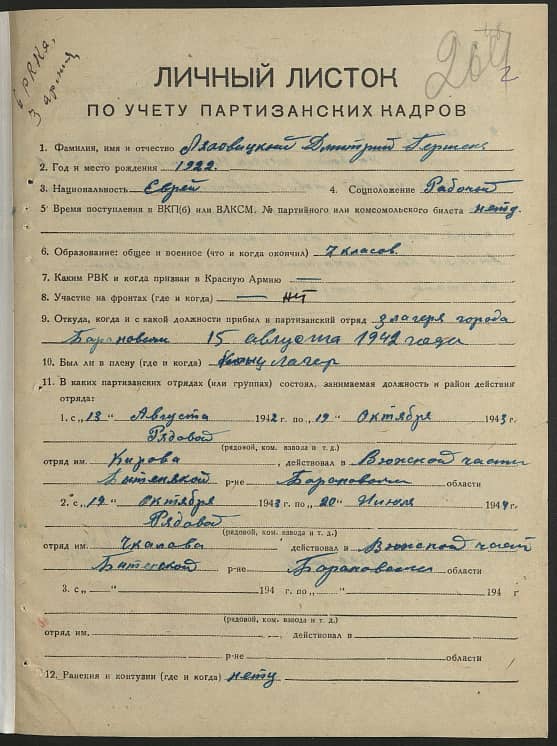 6 РККА,
3 армия
204
2
ЛИЧНЫЙ ЛИСТОК
ПО УЧЕТУ ПАРТИЗАНСКИХ КАДРОВ
1. Фамилия, имя и отчество Ляховицкий Дмитрий
2. Год и место рождения 1922.
3. Национальность Еврей 4. Соцположение Рабочий
5 Время поступления в ВКП(б) или ВЛКСМ. № партийного или комсомольского билета нету.
6. Образование: общее и военное (что и когда окончил) 7 класов.
7. Каким РВК и когда призван в Красную Армию —
8. Участие на фронтах (где и когда) — нет
9. Откуда, когда и с какой должности прибыл в партизанский отряд з лагеря города
Барановичи 15 августа 1942 года
10. Был ли в плену (где и когда) лагер
11. В каких партизанских отрядах (или группах) состоял, занимаемая должность и район действия
отряда:
1. с „13“ Августа 1942 г. по „19“ Октября 1943 г.
Рядовой
(рядовой, ком. взвода и т. д.)
отряд им. Кирова, действовал в Южной части
р-не Барановичи области
2. с „19“ октября 1943 г. по „20“ Июля 1944 г.
Рядовой
(рядовой, ком. взвода и т. д.)
отряд им. Чкалова действовал в Южной част
р-не Барановичи области
3. с „ “ 194 г. по „ “ 194 г
(рядовой, ком. взвода и т. д.)
отряд им. , действовал в
р-не области
12. Ранения и контузии (где и когда) нету